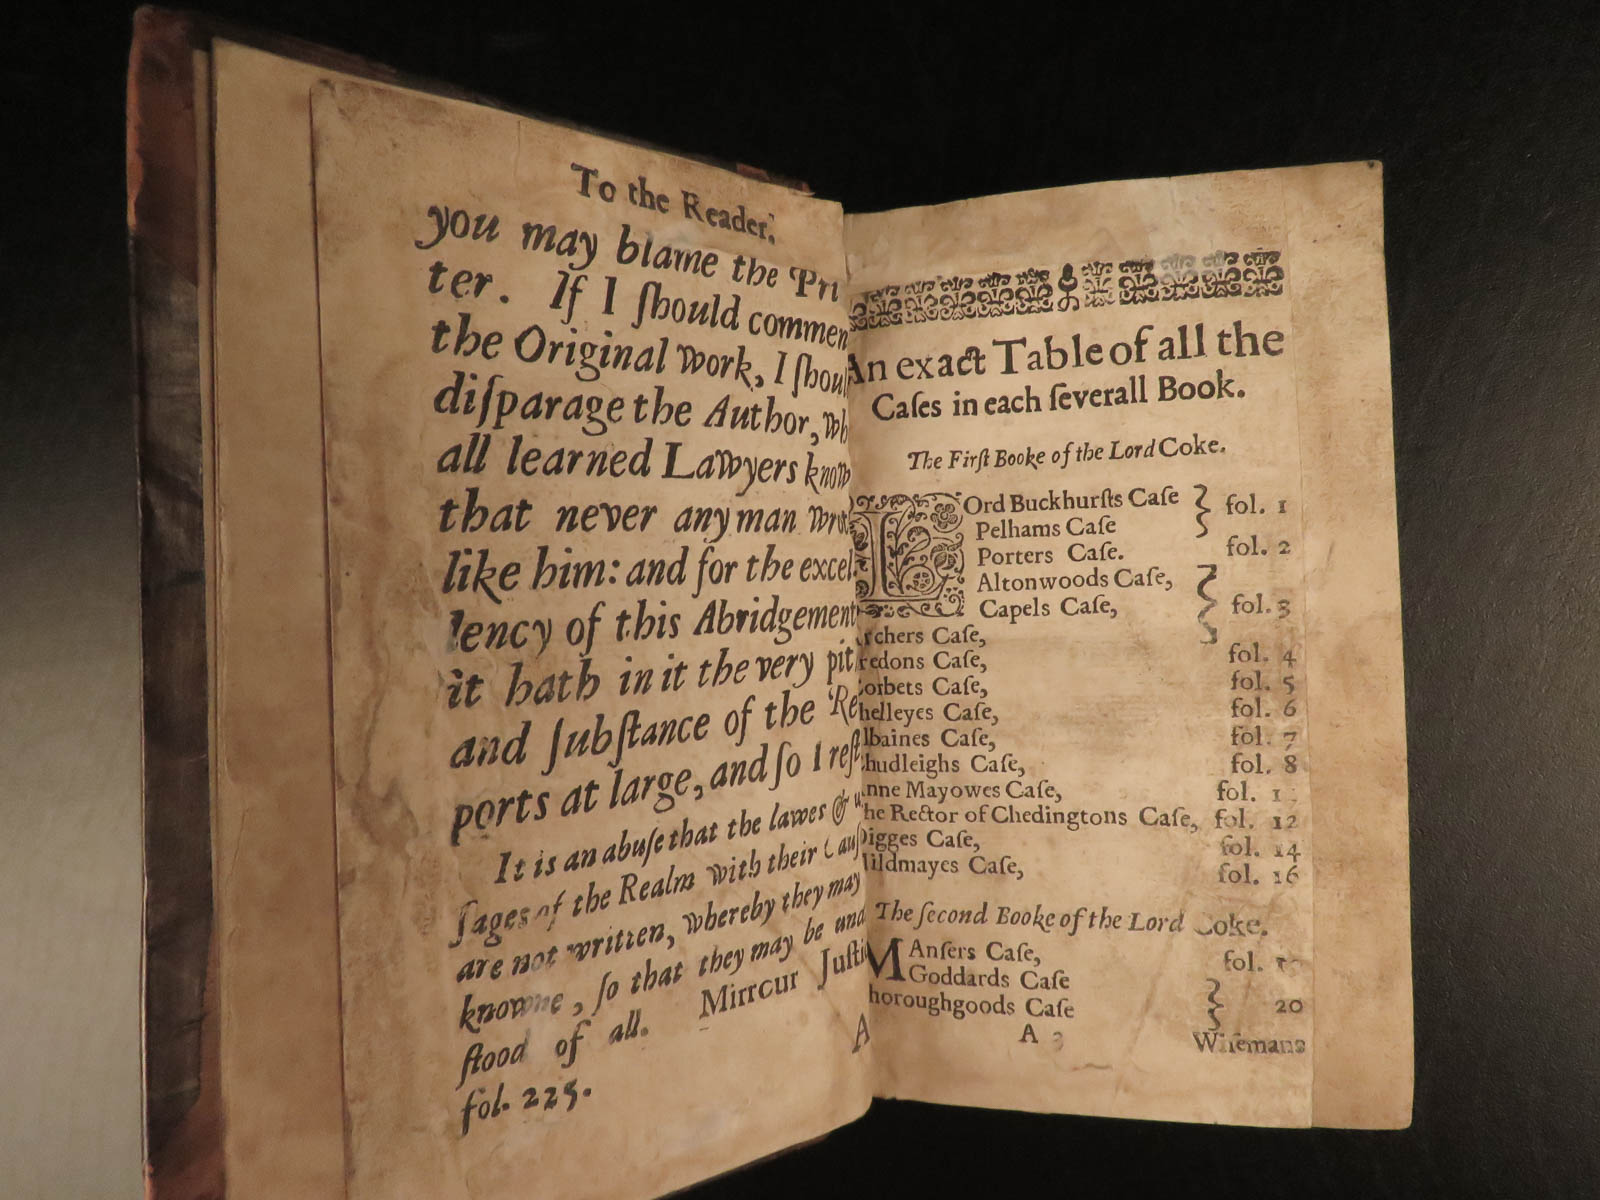 To the Reader.
you may blame the Pri
ter. If I ſhould commen
the Original work, I ſhoul
diſparage the Author, wh
all learned Lawyers know
that never any man wrot
like him: and for the excel-
lency of this Abridgement
it hath in it the very pit
and ſubſtance of the Re
ports at large, and ſo I reſt
It is an abuſe that the lawes & u
ſages of the Realm with their Cauſ
are not written, whereby they may
knowne, ſo that they may be und
ſtood of all. Mirrour Juſtic
fol. 225.
A
An exact Table of all the
Caſes in each ſeverall Book.
The Firſt Booke of the Lord Coke.
LOrd Buckhurſts Caſe } fol. 1
Pelhams Caſe
Porters Caſe. fol. 2
Altonwoods Caſe,
Capels Caſe, } fol. 3
rchers Caſe, fol. 4
redons Caſe, fol. 5
orbets Caſe, fol. 6
helleyes Caſe, fol. 7
lbaines Caſe, fol. 8
hudleighs Caſe,
nne Mayowes Caſe, fol. 1
he Rector of Chedingtons Caſe, fol. 12
igges Caſe, fol. 14
ildmayes Caſe, fol. 16
The ſecond Booke of the Lord Coke.
MAnſers Caſe, fol.
Goddards Caſe
horoughgoods Caſe } 20
A 3
Wiſemans